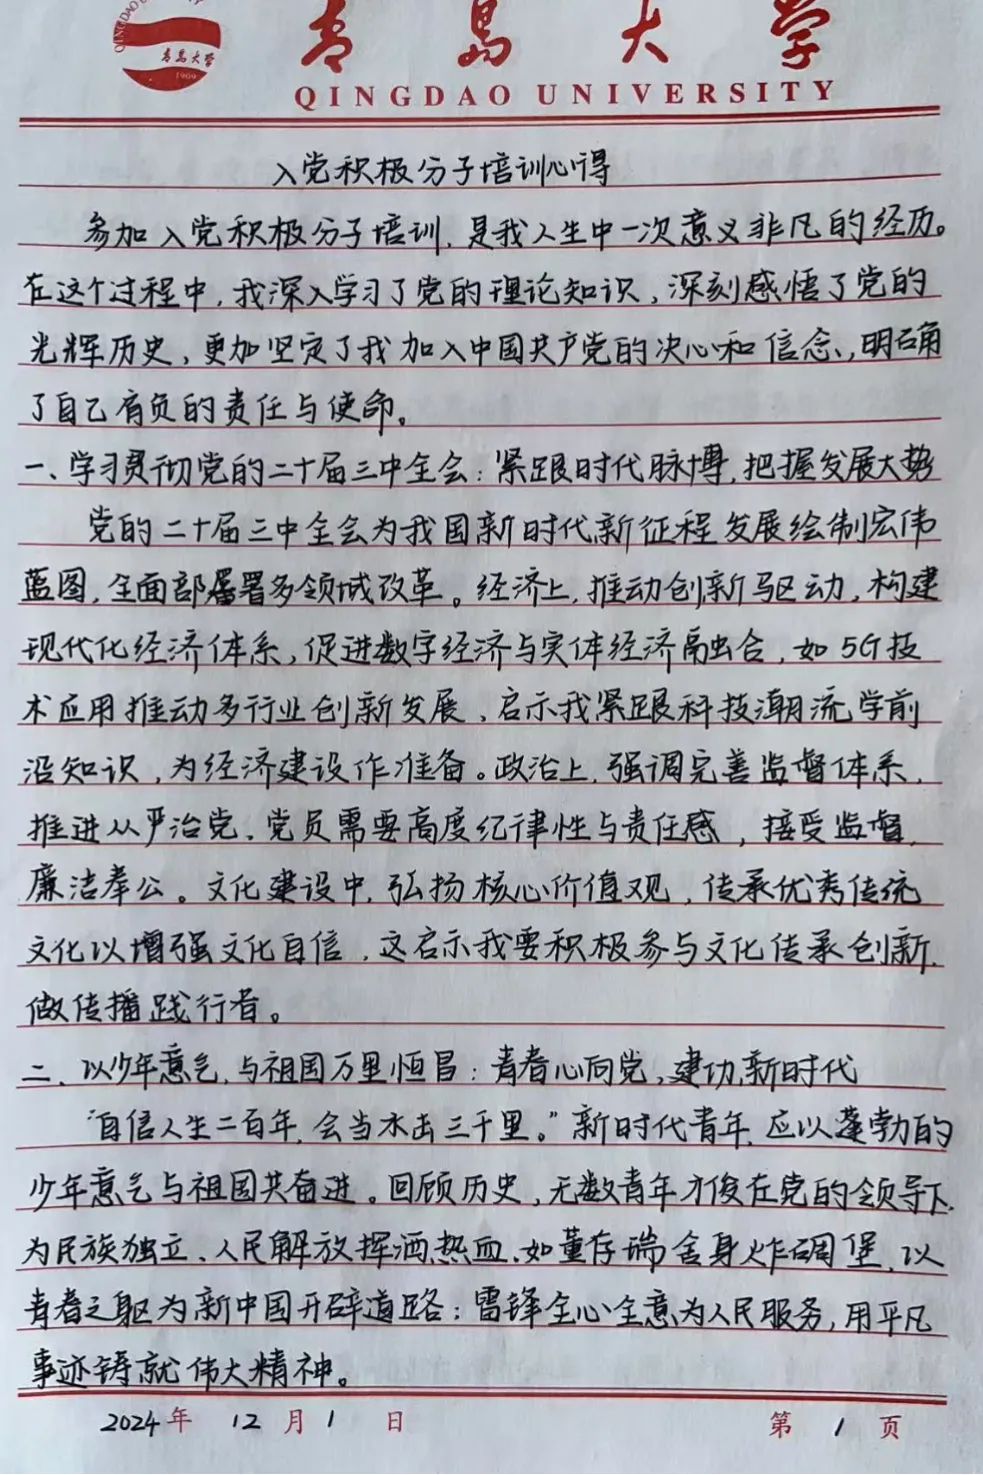 青岛大学
1909
青岛大学
QINGDAO UNIVERSITY
入党积极分子培训心得
参加入党积极分子培训,是我人生中一次意义非凡的经历。
在这个过程中,我深入学习了党的理论知识,深刻感悟了党的
光辉历史,更加坚定了我加入中国共产党的决心和信念,明确
了自己肩负的责任与使命。
一、学习贯彻党的二十届三中全会:紧跟时代脉博,把握发展大势
党的二十届三中全会为我国新时代新征程发展绘制宏伟
蓝图,全面部署多领域改革。经济上,推动创新驱动,构建
现代化经济体系,促进数字经济与实体经济融合,如5G技
术应用推动多行业创新发展,启示我紧跟科技潮流学前
沿知识,为经济建设作准备。政治上,强调完善监督体系,
推进从严治党,党员需要高度纪律性与责任感,接受监督,
廉洁奉公。文化建设中,弘扬核心价值观,传承优秀传统
文化以增强文化自信,这启示我要积极参与文化传承创新,
做传播践行者。
二、以少年意气,与祖国万里恒昌:青春心向党、建功新时代
“自信人生二百年,会当水击三千里。”新时代青年,应以蓬勃的
少年意气与祖国共奋进。回顾历史,无数青年才俊在党的领导下,
为民族独立、人民解放挥洒热血,如董存瑞舍身炸碉堡,以
青春之躯为新中国开辟道路;雷锋全心全意为人民服务,用平凡
事迹铸就伟大精神。
2024年 12月1日 第1页